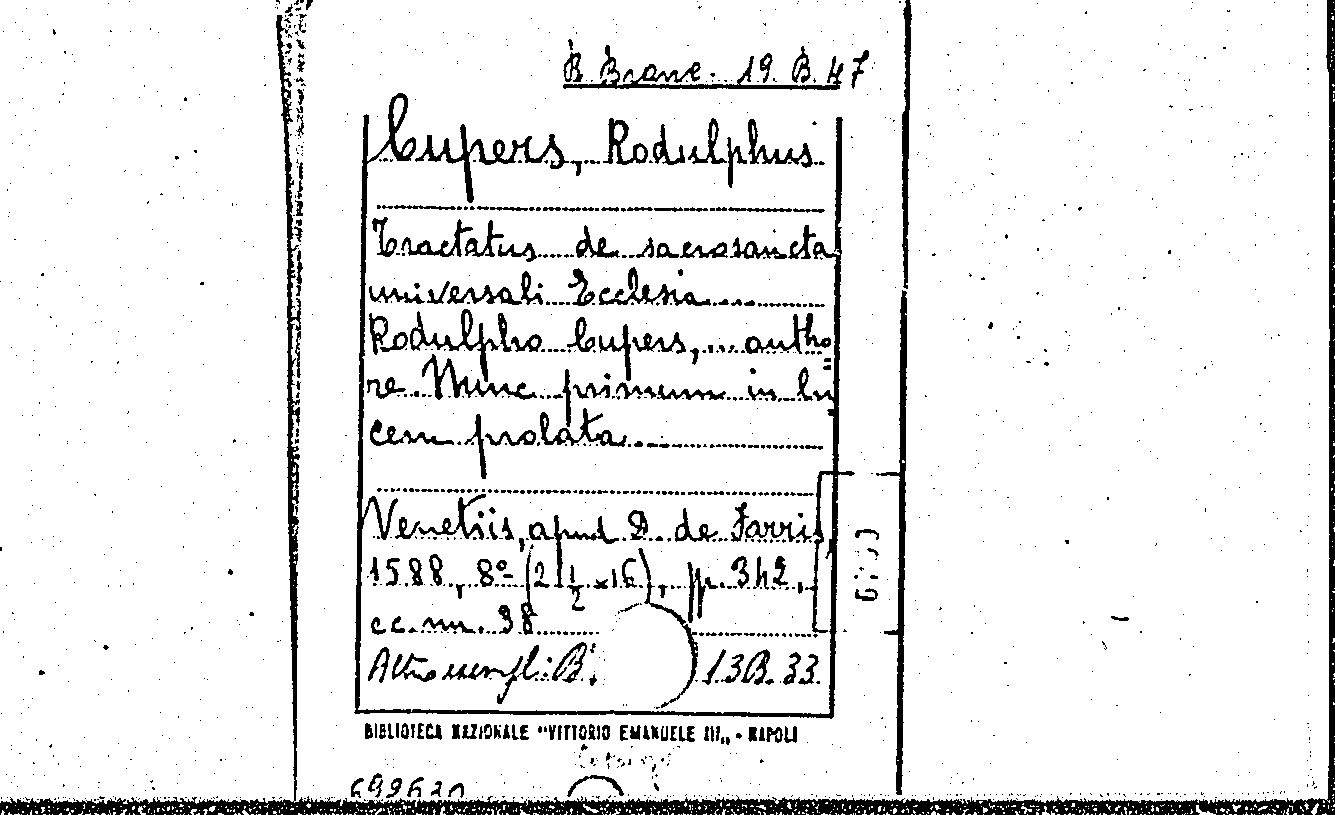 B. Branc. 19. B. 47
Cupers, Rodulphus
Tractatus de sacrosancta
universali Ecclesia....
Rodulpho Cupers,... autho=
re. Nunc primum in lu=
cem prolata...
Venetiis, apud D. de Farris,
1588, 8º (2 1/2 ×16), pp. 342,
cc. nn. 38
Altro esempl: B. 13B.33.
BIBLIOTECA NAZIONALE "VITTORIO EMANUELE III„ - NAPOLI